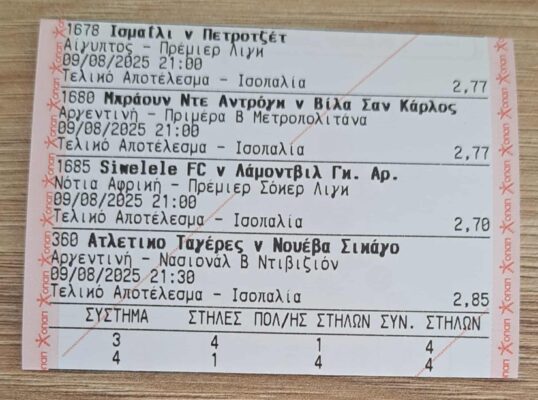 1678 Ισμαΐλι v Πετροτζέτ
Αίγυπτος - Πρέμιερ Λιγκ
09/08/2025 21:00
Τελικό Αποτέλεσμα - Ισοπαλία 2,77
1680 Μπράουν Ντε Αντρόγκ v Βίλα Σαν Κάρλος
Αργεντινή - Πριμέρα Β Μετροπολιτάνα
09/08/2025 21:00
Τελικό Αποτέλεσμα - Ισοπαλία 2,77
1685 Siwelele FC v Λάμοντβιλ Γκ. Αρ.
Νότια Αφρική - Πρέμιερ Σόκερ Λιγκ
09/08/2025 21:00
Τελικό Αποτέλεσμα - Ισοπαλία 2,70
360 Ατλετικο Ταγέρες v Νουέβα Σικάγο
Αργεντινή - Νασιονάλ Β Ντιβιζιόν
09/08/2025 21:30
Τελικό Αποτέλεσμα - Ισοπαλία 2,85
ΣΥΣΤΗΜΑ ΣΤΗΛΕΣ ΠΟΛ/ΗΣ ΣΤΗΛΩΝ ΣΥΝ. ΣΤΗΛΩΝ
3 4 1 4
4 1 4 4
οπαπ